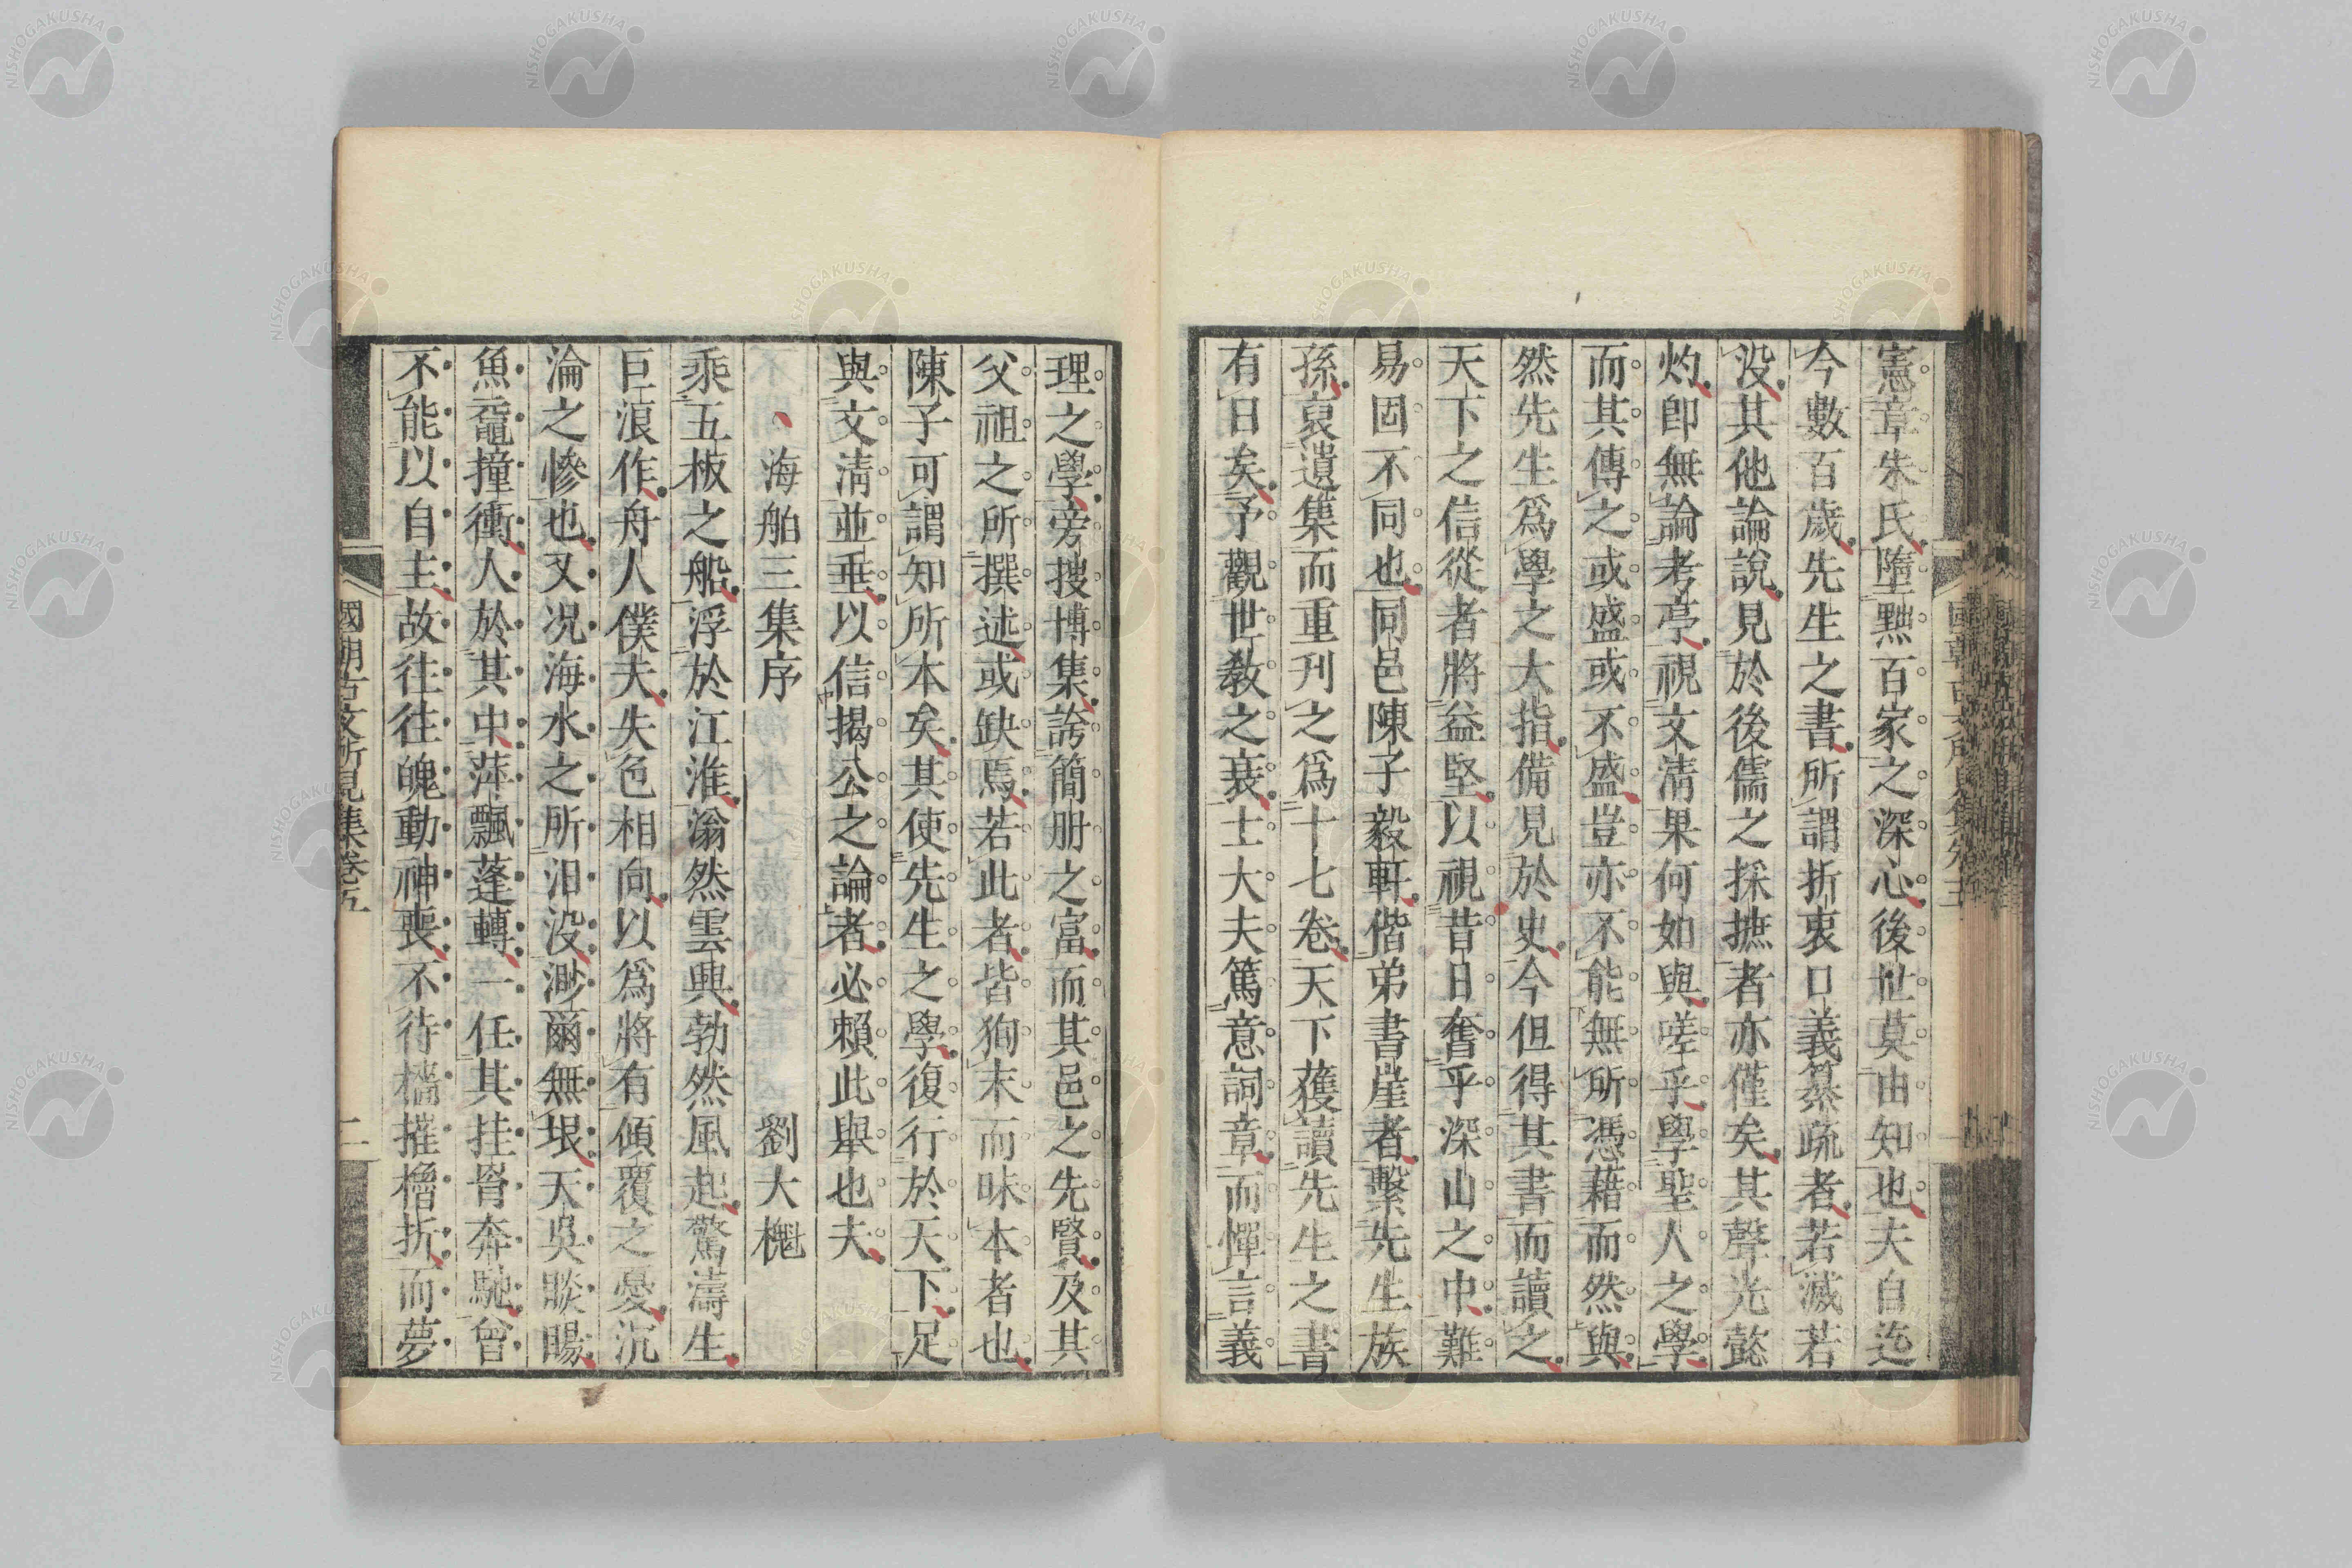 憲章朱氏墮黙百家之深心後世莫由知也夫自迄
今數百歲先生之書所謂折衷口義纂疏者若滅若
没其他論說見於後儒之採摭者亦僅矣其聲光懿
灼即無論考亭視文淸果何如與嗟乎學聖人之學
而其傳之或盛或不盛豈亦不能無所憑藉而然與
然先生爲學之大指備見於史今但得其書而讀之
天下之信從者將益堅以視昔日奮乎深山之中難
易固不同也同邑陳子毅軒偕弟書崖者繫先生族
孫裒遺集而重刋之爲十七卷天下獲讀先生之書
有日矣予觀世敎之衰士大夫篤意詞章而憚言義
理之學旁搜博集誇簡册之富而其邑之先賢及其
父祖之所撰述或缺焉若此者皆狥末而昧本者也
陳子可謂知所本矣其使先生之學復行於天下足
與文淸並垂以信揭公之論者必賴此舉也夫
海舶三集序 劉大櫆
乘五板之船浮於江淮滃然雲興勃然風起驚濤生
巨浪作舟人僕夫失色相向以爲將有傾覆之憂沉
淪之慘也又况海水之所汨没渺爾無垠天吳睒睗
魚鼋撞衝人於其中萍飄蓬轉一任其挂罥奔馳曾
不能以自主故往往魄動神喪不待檣摧櫓折而夢
國朝古文所見集卷五 二